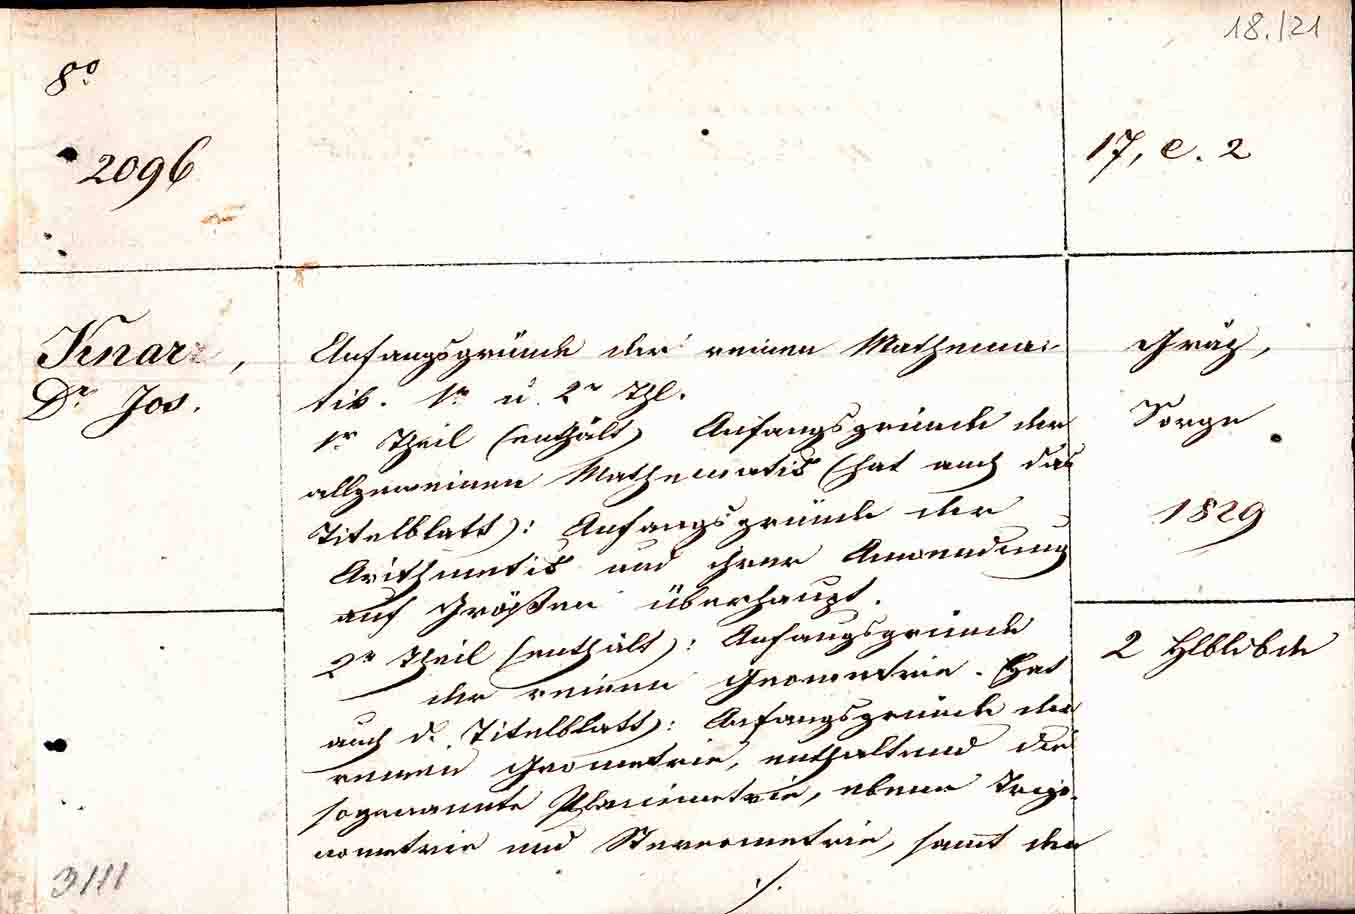 18./21
8º
2096
17, e. 2
Knar,
Dr Jos.
Anfangsgründe der reinen Mathema-
tik. 1r u. 2r Thl.
1r Theil (enthält) Anfangsgründe der
allgemeinen Mathematik (hat auch das
Titelblatt): Anfangsgründe der
Arithmetik und ihrer Anwendung
auf Größen überhaupt.
2r Theil (enthält): Anfangsgründe
der reinen Geometrie. (Hat
auch d. Titelblatt): Anfangsgründe der
reinen Geometrie, enthaltend die
sogenannte Planimetrie, ebene Trigo-
nometrie und Stereometrie, sam̄t den
./.
Gräz,
Sorge
1829
2 Hlbldbde
3111